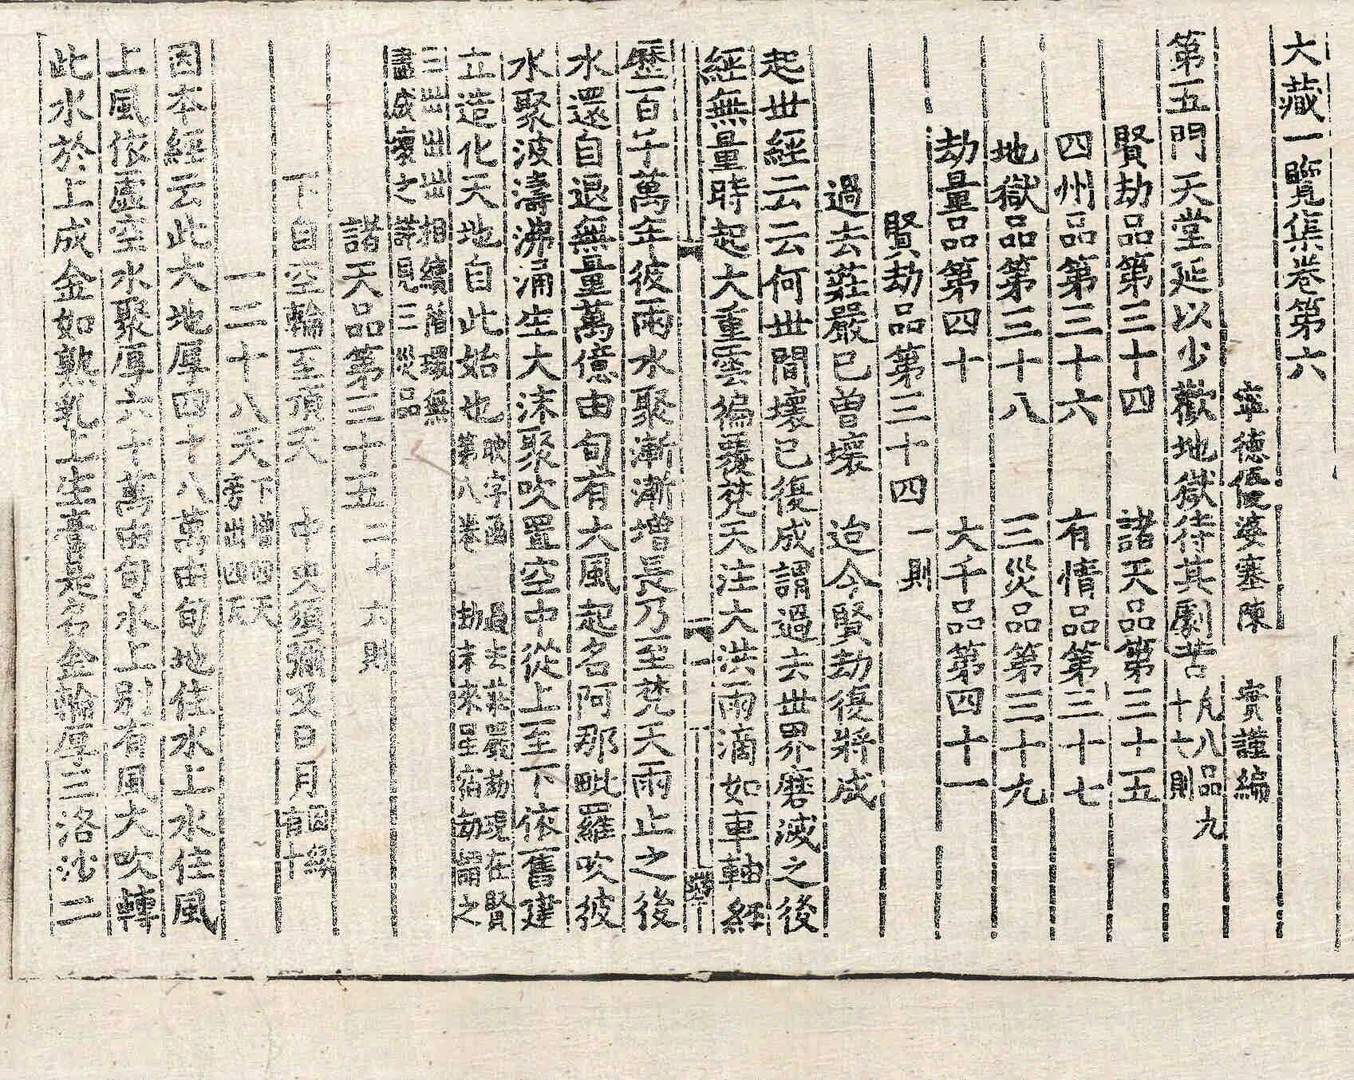 大藏一覽集卷第六
寧德優婆塞陳 實謹編
第五門天堂延以少歡地獄待其劇苦凡八品九十六則
賢劫品第三十四 諸天品第三十五
四州品第三十六 有情品第三十七
地獄品第三十八 三災品第三十九
劫量品第四十 大千品第四十一
賢劫品第三十四一則
過去莊嚴已曾壞 迨今賢劫復將成
起世經云云何世間壞已復成謂過去世界磨滅之後
經無量時起大重雲徧覆梵天注大洪雨滴如車軸經
歷百千萬年彼雨水聚漸漸增長乃至梵天雨止之後
水還自退無量萬億由旬有大風起名阿那毗羅吹彼
水聚波濤沸涌生大沫聚吹置空中從上至下依舊建
立造化天地自此始也映字函第八卷 過去莊嚴劫現在賢劫未來星宿劫謂之
三世出世相續循環無盡成壞之詳見三災品
諸天品第三十五二十六則
下自空輪至頂天 中央須彌及日月有十因緣
一二十八天下增四天旁出四天
因本經云此大地厚四十八萬由旬地住水上水住風
上風依虛空水聚厚六十萬由旬水上別有風大吹轉
此水於上成金如熟乳上生膏是名金輪厚三洛沙二